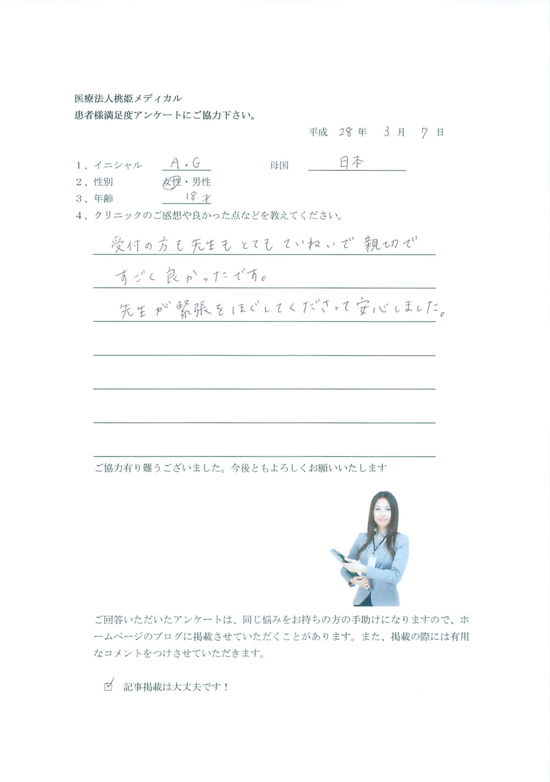 医療法人桃姫メディカル
患者様満足度アンケートにご協力下さい。
平成 28 年 3 月 7 日
1、イニシャル A・G 母国 日本
2、性別 女性・男性
3、年齢 18才
4、クリニックのご感想や良かった点などを教えてください。
受付の方も先生もとてもていねいで親切で
すごく良かったです。
先生が緊張をほぐしてくださって安心しました。
ご協力有り難うございました。今後ともよろしくお願いいたします
ご回答いただいたアンケートは、同じ悩みをお持ちの方の手助けになりますので、ホ
ームページのブログに掲載させていただくことがあります。また、掲載の際には有用
なコメントをつけさせていただきます。
☑ 記事掲載は大丈夫です！